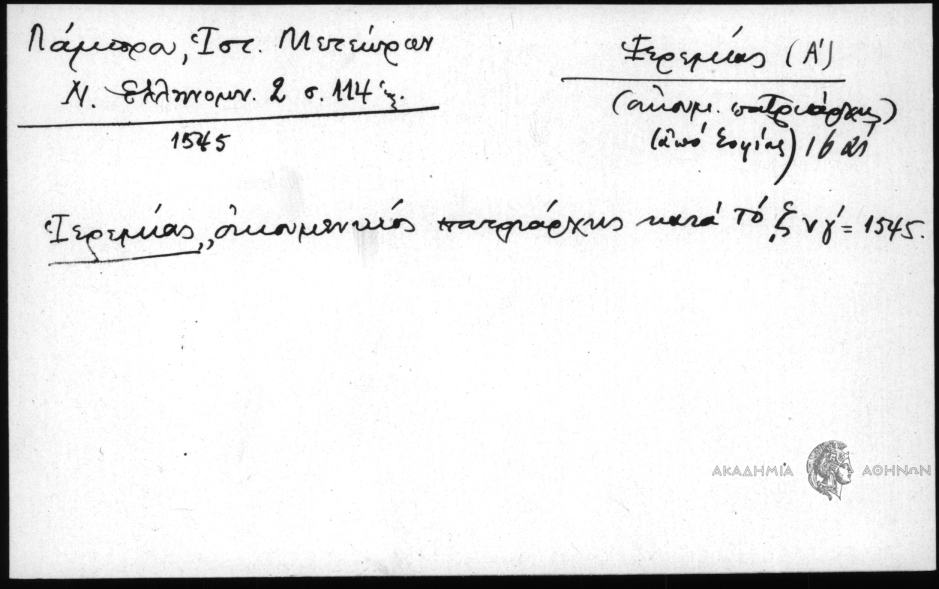 Λάμπρου, Ἱστ. Μετεώρων
Ν. Ἑλληνομν. 2 σ. 114 ἑξ.
1545
Ἱερεμίας (Α΄)
(οἰκουμ. πατριάρχης)
(ἀπό Σοφίας) 16 αἰ
Ἱερεμίας, οἰκουμενικός πατριάρχης κατά τό ͵ζνγ΄ = 1545.
ΑΚΑΔΗΜΙΑ ΑΘΗΝΩΝ